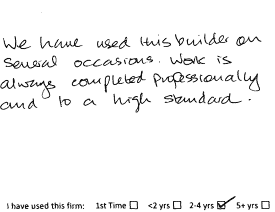 We have used this builder on
several occasions. Work is
always completed professionally
and to a high standard.
I have used this firm: 1st Time ☐ <2 yrs ☐ 2-4 yrs ☑ 5+ yrs ☐